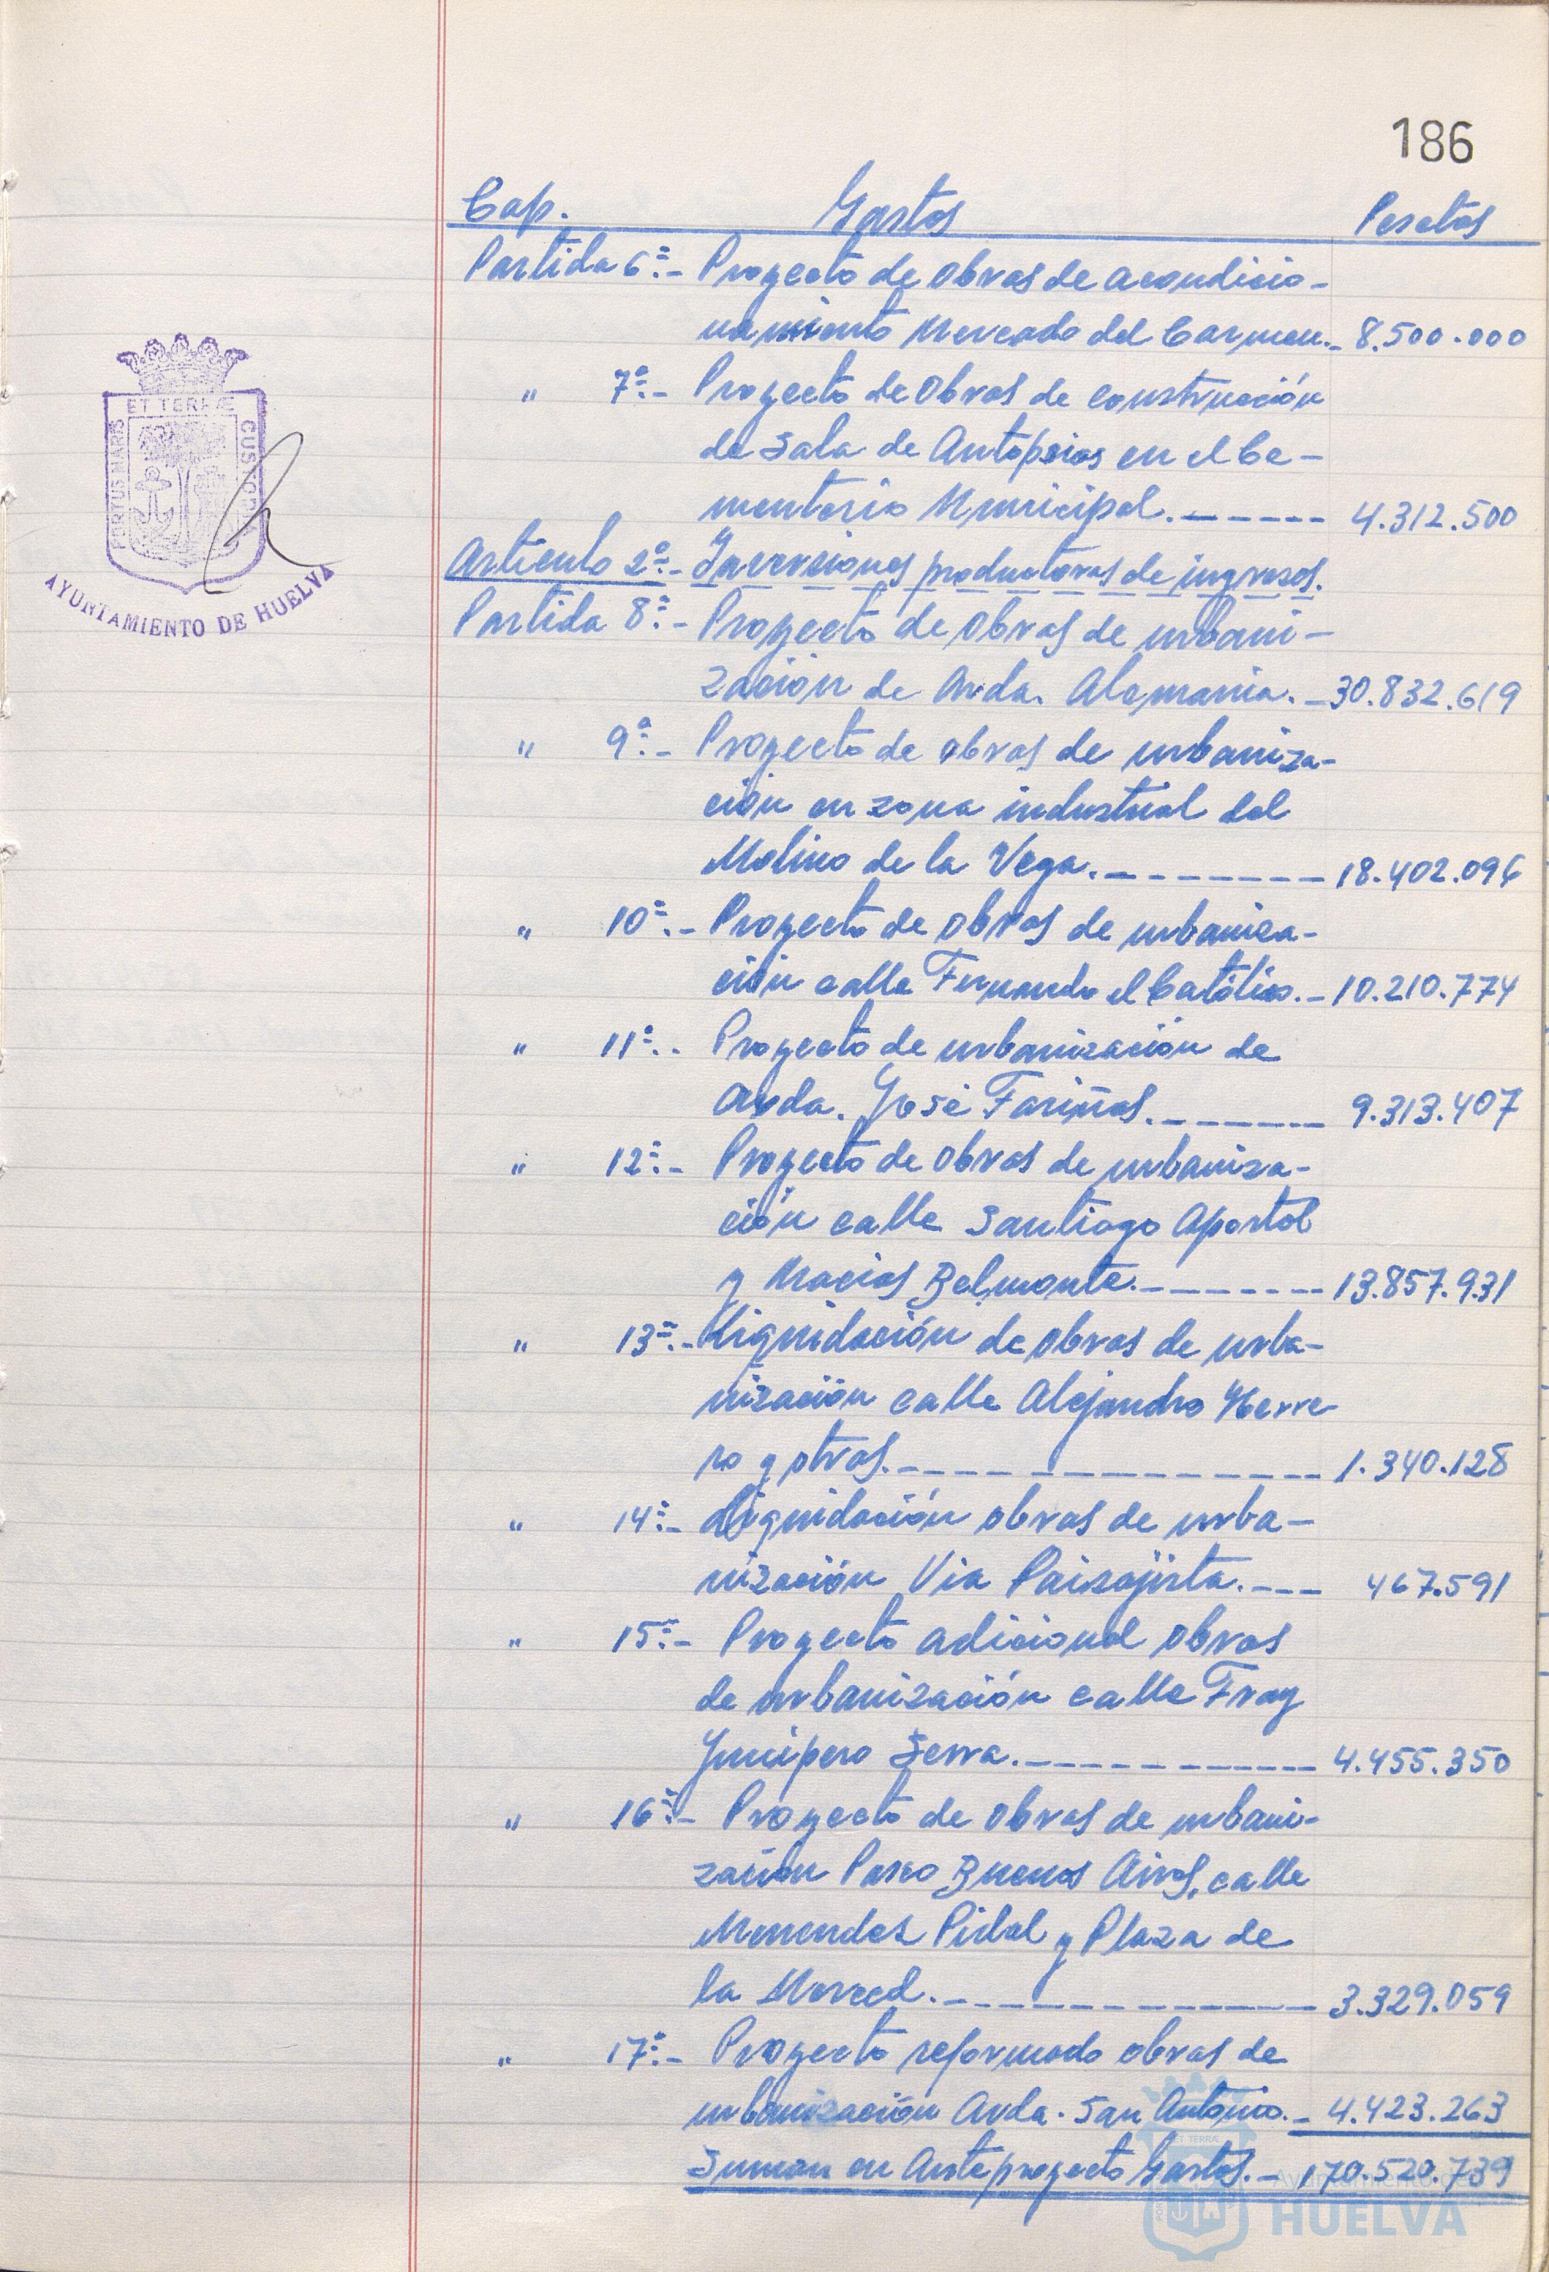 186
Cap. Gastos Pesetas
Partida 6ª.- Proyecto de obras de acondicio-
namiento Mercado del Carmen.- 8.500.000
" 7ª.- Proyecto de obras de construcción
de Sala de Autopsias en el Ce-
menterio Municipal.------- 4.312.500
Artículo 2º.- Inversiones productoras de ingresos.
Partida 8ª.- Proyecto de obras de urbani-
zación de Avda. Alemania.- 30.832.619
" 9ª.- Proyecto de obras de urbaniza-
ción en zona industrial del
Molino de la Vega.-------- 18.402.096
" 10ª.- Proyecto de obras de urbaniza-
ción calle Fernando el Católico.- 10.210.774
" 11ª.- Proyecto de urbanización de
Avda. José Fariñas.------- 9.313.407
" 12ª.- Proyecto de obras de urbaniza-
ción calle Santiago Apostol
y Macias Belmonte.-------- 13.857.931
" 13ª.- Liquidación de obras de urba-
nización calle Alejandro Herre-
ro y otras.--------------- 1.340.128
" 14ª.- Liquidación obras de urba-
nización Via Paisajista.--- 467.591
" 15ª.- Proyecto adicional obras
de urbanización calle Fray
Junipero Serra.----------- 4.455.350
" 16ª.- Proyecto de obras de urbani-
zación Paseo Buenos Aires, calle
Menendez Pidal y Plaza de
la Merced.-------------- 3.329.059
" 17ª.- Proyecto reformado obras de
urbanización Avda. San Antonio.- 4.423.263
Suman en Anteproyecto Gastos.- 170.520.739
PORTUS MARIS ET TERRÆ CUSTODIA
AYUNTAMIENTO DE HUELVA
Ayuntamiento de
HUELVA